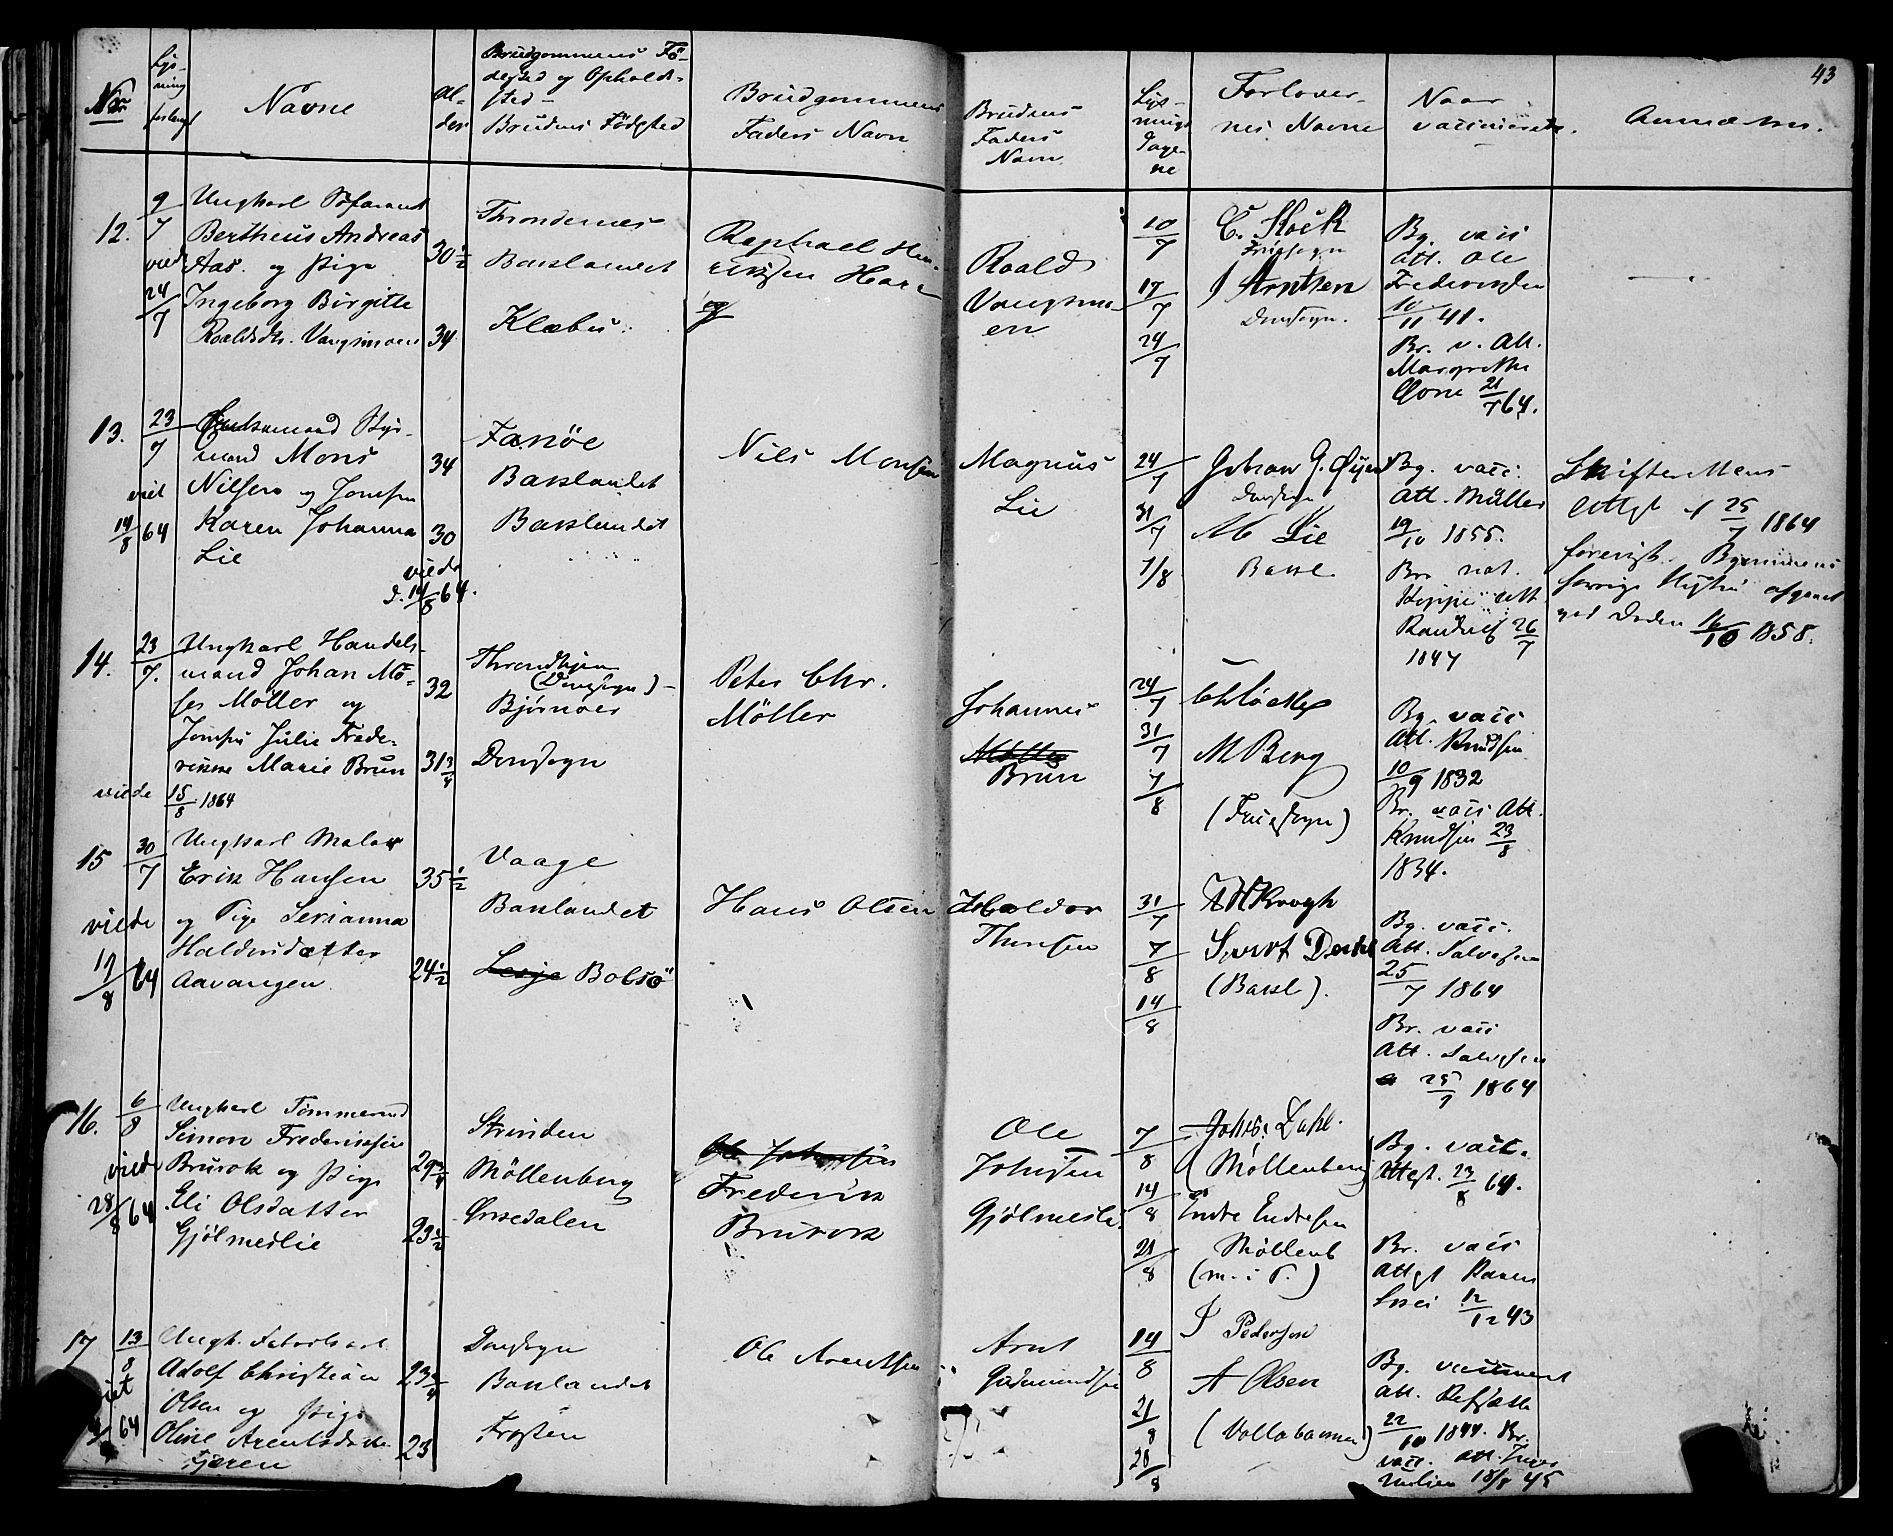 43
Nr
Lys-
ning
Navne
Al-
der
Brudgommens Fö-
dested og Opholds-
sted -
Brudens Födested
Brudgommens
Faders Navn
Brudens
Faders
Navn
Lys-
nings
Dage-
ne
Forlover-
nes Navne
Naar
vaccinerede.
Anmærkn.
12.
9/7
viede
24/7
Ungkarl
Bertheus Andreas
Aas. og Pige
Ingeborg Birgitte
Roaldsdtr. Vangsmoen
30 1/2
34
Throndenes
Baklandet
Klæbu
Raphael Hen-
riksen
Roald
Vangsmo-
en
10/7
17/7
24/7
C. Stock
Fruesogn
J Arntsen
Domsogn.
Bg. vacc
Att. Ole
Frederiksen
10/11 41.
Br. v. Att.
Margrethe
21/7 64.
13.
23/7
viet
14/8 64
Enkemand Sty-
mand Mons
Nilsen og Jomfru
Karen Johanna
Lie
34
30
viede
d. 14/8 64.
Fanöe
Baklandet
Baklandet
Nils Monsen
Magnus
Lie
24/7
31/7
7/8
Johan G. Öyen
Domsogn
M Lie
Bakl.
Bg. vacc.
Att. Müller
19/10 1855.
Br. nat.
Kopper Att
26/7
1847
Skifterettens
Attest af 25/7 1864
forevist. Brudgommens
forrige Hustru afgaaet
ved Døden 16/10 1858.
14.
23/7.
Ungkarl Handels-
mand Johan Mo-
ses Möller og
Jomfru Julie Frede-
rikke Marie Brun
viede 15/8 1864
32
31 3/4
Throndhjem
(Domsogn) -
Bjørnöer
Domsogn
Peter Chr.
Möller
Johannes
Brun
24/7
31/7
7/8
M Berg
(Fruesogn)
Bg. vacc
Att. Knudsen
10/9 1832
Br. vacc Att.
Knudsen 23/8
1834.
15
30/7
viede
17/8 64
Ungkarl Maler
Erik Hansen
og Pige Serianna
Haldorsdatter
Aavangen
35 1/2
24 1/2
Vaage
Baklandet
Lesje Bolsö
Hans Olsen
Haldor
Thoresen
31/7
7/8
14/8
Krogh
Sivert Dahl
(Bakl).
Bg. vacc.
Att. Salvesen
25/7 1864
Br. vacc
Att. Salvesen
25/7 1864
16.
6/8
viede
28/8 64
Ungkarl Tömmermd
Simon Frederiksen
Brurok og Pige
Eli Olsdatter
Gjölmeslie
29 3/4
23 1/2
Strinden
Möllenberg
Orkedalen
Ole Johnsen
Frederik
Brurok
Ole
Johnsen
Gjölmesli
7/8
14/8
21/8
Johs. Dahl.
(Möllenberg)
Endre Endresen
Möllenb
(m. i P.)
Bg. vacc.
Attest. 23/8 64.
Br. vacc
Attest Karen
12/12 43
17
13/8
viet
64
Ungk. Fabrikarb
Adolf Christian
Olsen og Pige
Oline Arentsdatter
Fjæren
23 3/4
23
Domsogn
Baklandet
Frosten
Ole Arentsen
Arnt
Gudmundsen
14/8
21/8
28/8
J Pedersen
A Olsen
(Vollabakken)
Bg. vaccineret
Att.
22/10 1844. Br.
vacc. Att.
18/8 45